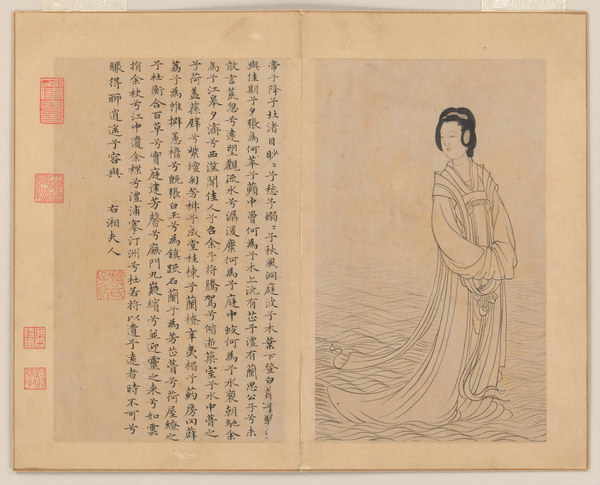 帝子降兮北渚目眇〻兮愁予嫋〻兮秋風洞庭波兮木葉下登白薠兮騁望
與佳期兮夕張鳥何萃兮蘋中罾何為兮木上沅有芷兮澧有蘭思公子兮未
敢言荒忽兮遠望觀流水兮潺湲麋何為兮庭中蛟何為兮水裔朝馳余
馬兮江皋夕濟兮西澨聞佳人兮召余兮將騰駕兮偕逝築室兮水中葺之
兮荷蓋蓀壁兮紫壇匊芳椒兮成堂桂棟兮蘭橑辛夷楣兮葯房罔薜
荔兮為帷擗蕙櫋兮既張白玉兮為鎮疏石蘭兮為芳芷葺兮荷屋繚之
兮杜衡合百草兮實庭建芳馨兮廡門九嶷繽兮並迎靈之來兮如雲
捐余袂兮江中遺余褋兮澧浦搴汀洲兮杜若將以遺兮遠者時不可兮
驟得聊逍遙兮容與 右湘夫人